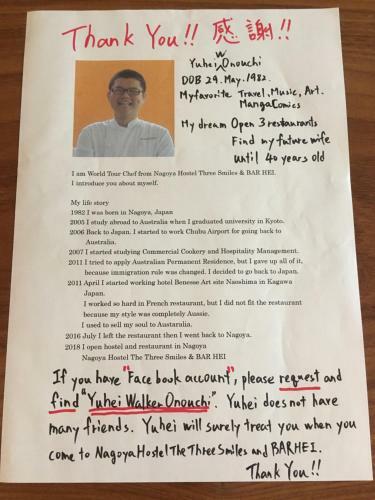 Thank You!! 感謝!!
Yuhei W Onouchi
DOB 29. May. 1982.
My favorite Travel, Music, Art.
Manga Comics
My dream Open 3 restaurants
Find my future wife
until 40 years old
I am World Tour Chef from Nagoya Hostel Three Smiles & BAR HEI.
I introduce you about myself.
My life story
1982 I was born in Nagoya, Japan
2005 I study abroad to Australia when I graduated university in Kyoto.
2006 Back to Japan. I started to work Chubu Airport for going back to
Australia.
2007 I started studying Commercial Cookery and Hospitality Management.
2011 I tried to apply Australian Permanent Residence, but I gave up all of it,
because immigration rule was changed. I decided to go back to Japan.
2011 April I started working hotel Benesse Art site Naoshima in Kagawa
Japan.
I worked so hard in French restaurant, but I did not fit the restaurant
because my style was completely Aussie.
I used to sell my soul to Austaralia.
2016 July I left the restaurant then I went back to Nagoya.
2018 I open hostel and restaurant in Nagoya
Nagoya Hostel The Three Smiles & BAR HEI
If you have "Face book account", please request and
find "Yuhei Walker Onouchi". Yuhei does not have
many friends. Yuhei will surely treat you when you
come to Nagoya Hostel The Three Smiles and BAR HEI.
Thank You!!